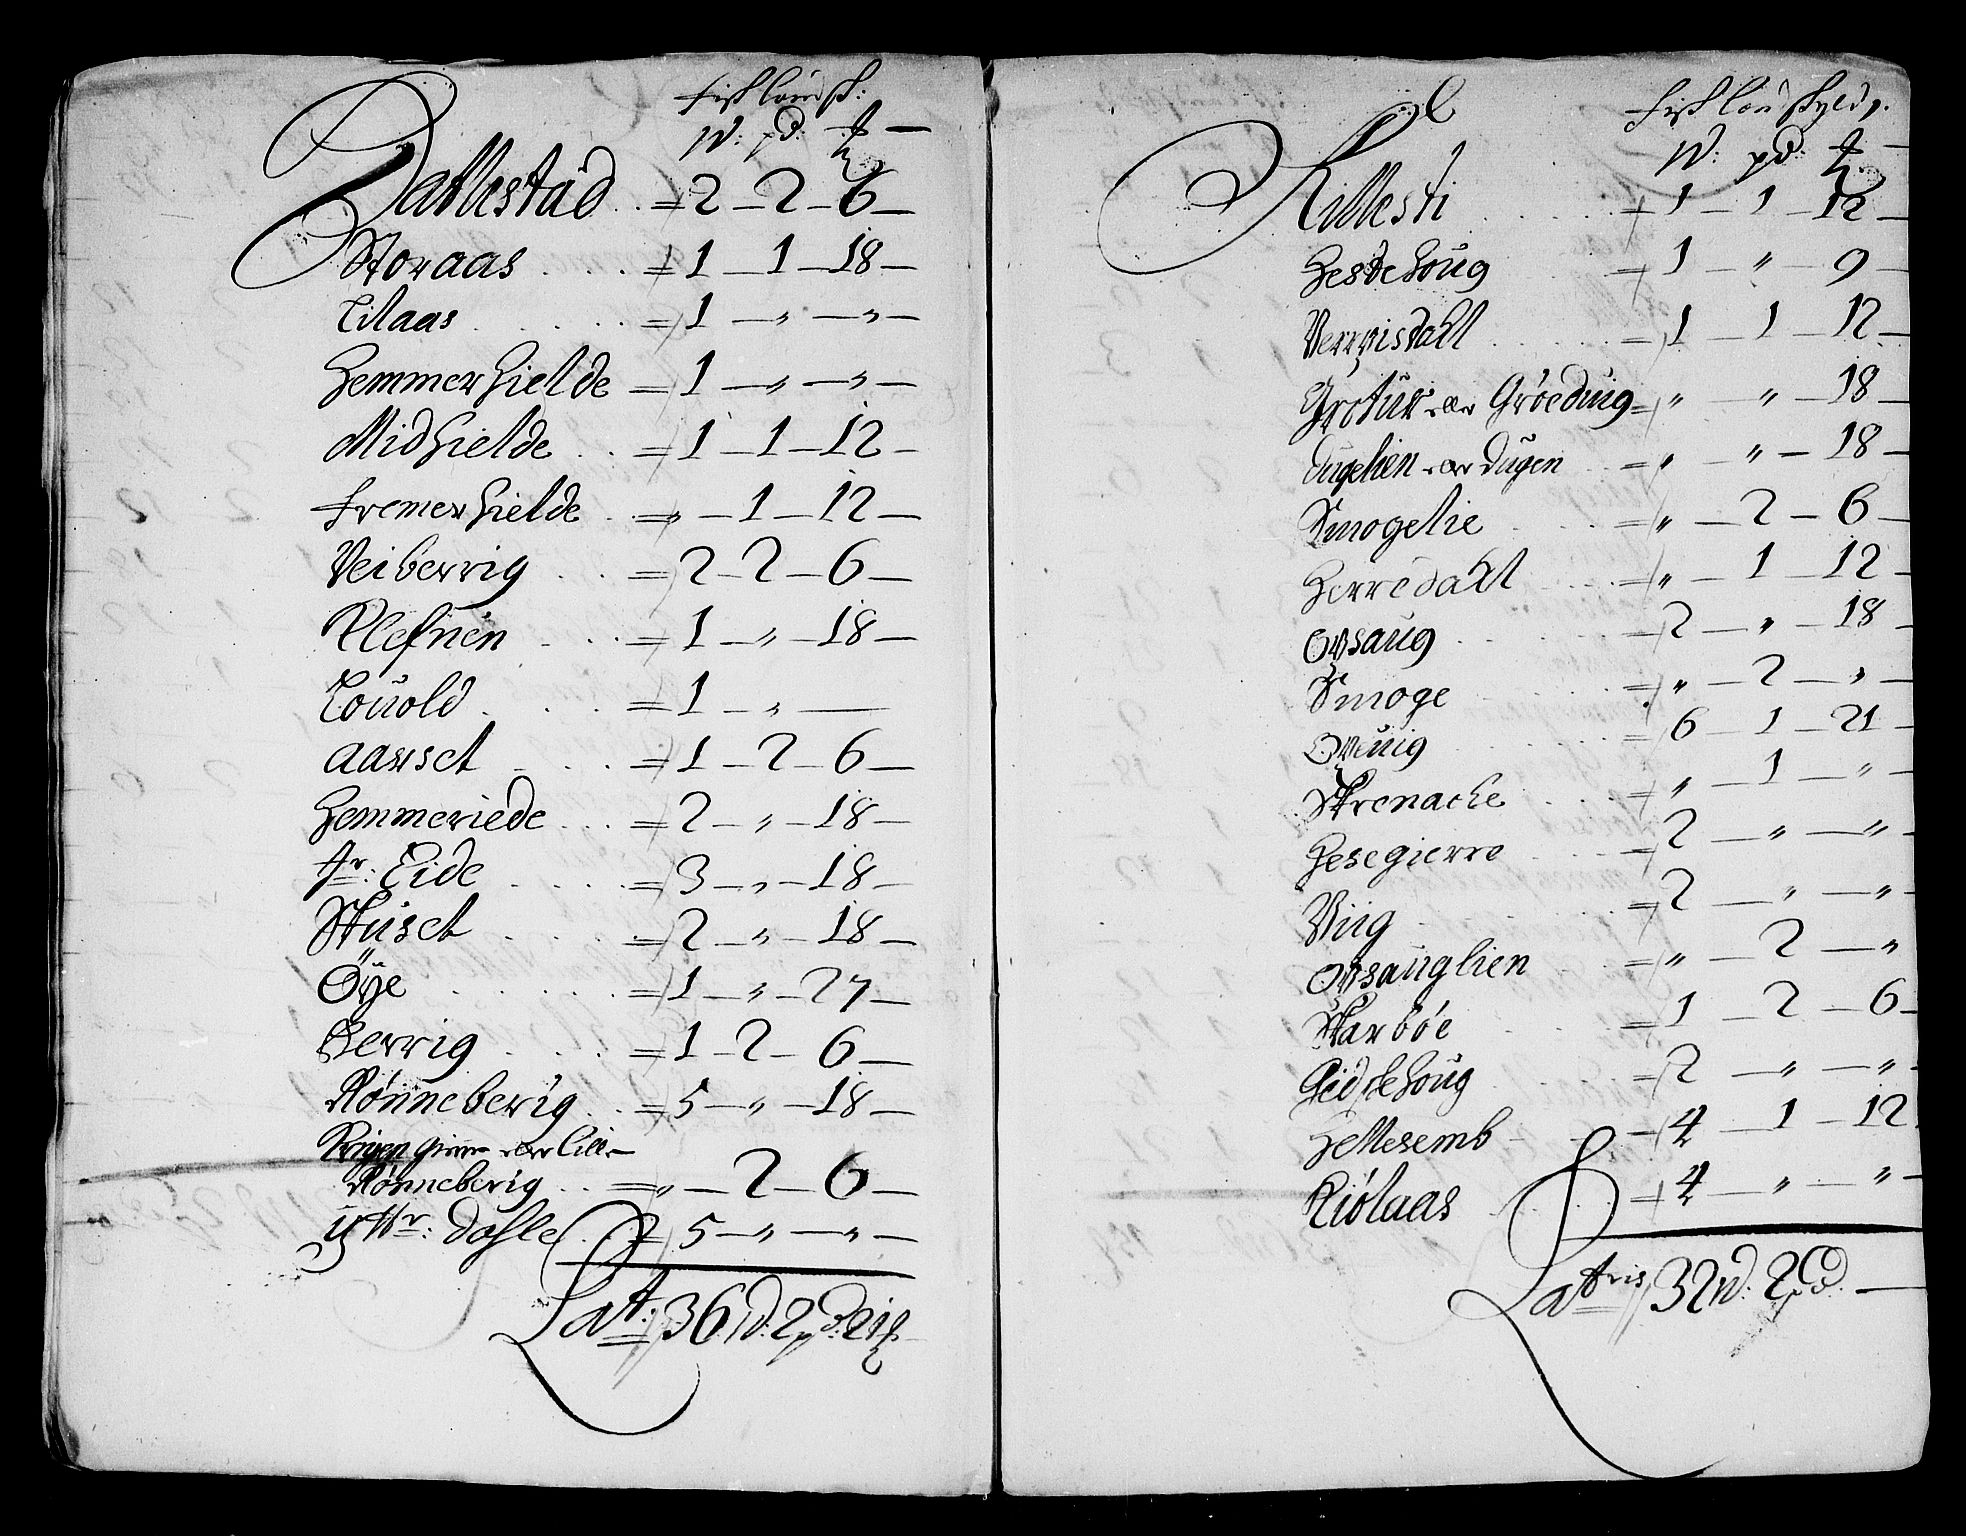 fisk land sk:
W: pd: ℔
Dattestad = 2 – 2 – 6 –
Storaas = 1 – 1 – 18 –
Lilaas = 1 – " – " –
Hemmerhielde = 1 – " – " –
Midhielde = 1 – 1 – 12 –
Fremerhielde = " – 1 – 12 –
Veiberrig = 2 – 2 – 6 –
Klefnen = 1 – " – 18 –
Louold = 1 – " –
Aarset = 1 – 2 – 6 –
Hemmeriede = 2 – " – 18 –
Ytr: Eide = 3 – " – 18 –
Skuset = 2 – " – 18 –
Öye = 1 – " – 27 –
Berrig = 1 – 2 – 6 –
Rónneberig = 5 – " – 18 –
eller Lille
Rónneberig = " – 2 – 6 –
Yttr: Dahle = 5 – " – " –
Lat: 36 W: 2 pd: 21 ℔
fisk land skyld
W: pd: ℔
Killesti = 1 – 1 – 12 –
Hestehoug = 1 – " – 9 –
Verrpisdahl = 1 1 – 12 –
Grotur eller Gróeduig = " – " – 18 –
Dugelien eller Dugen = " – " – 18 –
Smogelie = " – 2 – 6 –
Herredahl = " – 1 – 12 –
Opsaug = 2 – " – 18 –
Smoge = " – 2 – " –
Opuiig = 6 – 1 – 21 –
Strenache = " – 1 – " –
Hesegierre = 2 – " – " –
Viig = 2 – " – " –
Opsauglien = " – 2 – "
Skarbóe = 1 – 2 – 6 –
Eidsehoug = 2 – " – " –
Hellesemb = 4 – 1 – 12
Kiólaas = 4 – " – " –
Latris 32 W: 2 pd. –